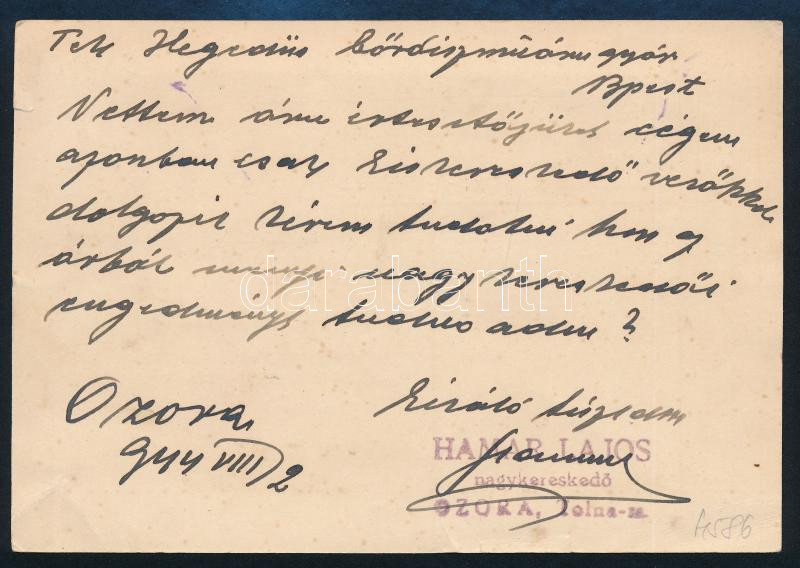 Tek Hegedüs bördiszműáru gyár
Bpest
Vettem áru értesítőjüket cégem
azonban csak kiskereskedő vevőkkel
dolgozik kérem tudatni hogy
árból mennyi nagykereskedői
engedményt tudna adni?
Ozora
944 VIII/2
Kiváló tisztelettel
HAMAR LAJOS
nagykereskedő
OZORA, Tolna-m.
darabanth